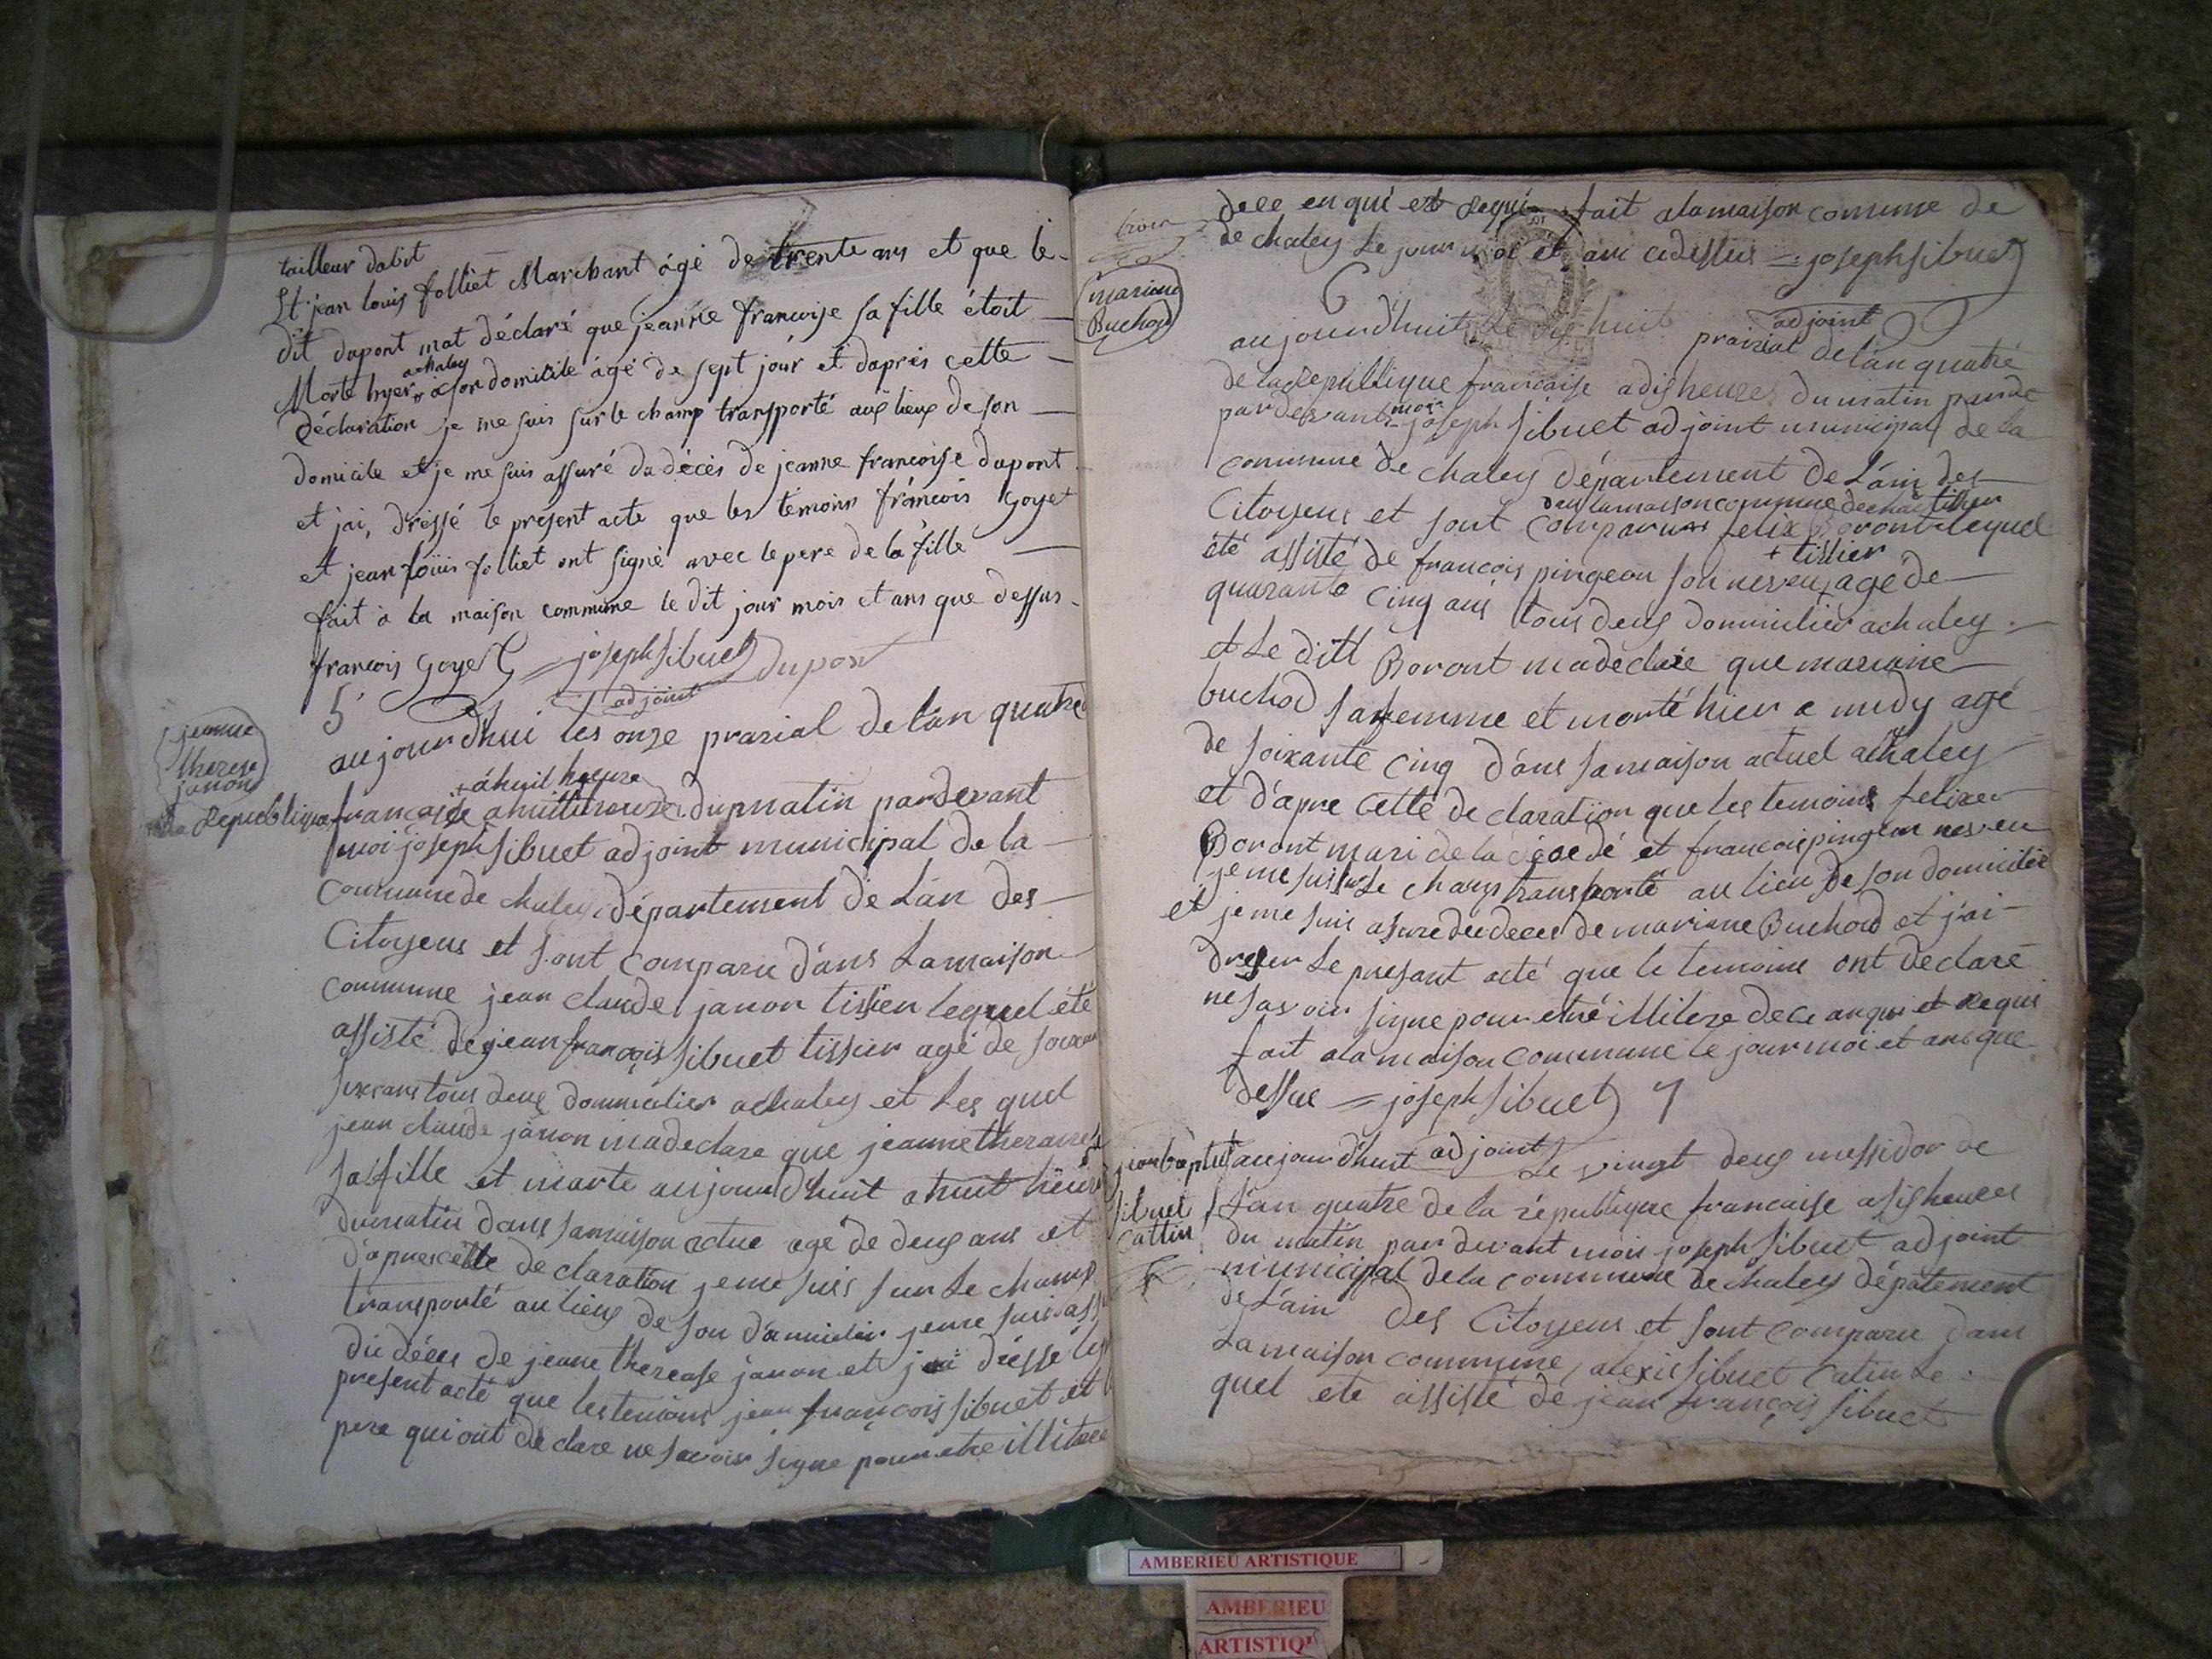 tailleur dabit
Et jean louis folliet Marchant ágé de trente ans et que le
dit dupont mat déclaré que jeanne francoise sa fille étoit
achaley
Morte hyer a son domicile ágé de sept jour et daprès cette
déclaration je me suis sur le champ transporté aux lieux de son
domicile et je me suis assuré du décès de jeanne francoise dupont
et jai, dressé le présent acte que les témoins francois Goyet
et jean loüis folliet ont signé avec le pere de la fille
fait à la maison commune le dit jour mois et ans que dessus.
francois Goyet joseph sibuet dupont
adjoint
5
jeanne
therese
janon
aujourdhui les onze prarial de lán quatre
+ áhuit heure
La Republique francaise du matin pardevant
moi joseph sibuet adjoint municipal de la
commune de chaley département de Lán des
Citoyens et sont comparu dáns La maison
commune jean claude janon tissien lequel été
assisté de jean françois sibuet tissier agé de
six ans tous deux domicilier a chaley et Les quel
jean claude janon ma declare que jeanne
sa fille et marte aujourdhuit a huit heure
du matin dans sa maison actue age de deux ans et
dápres cette declaration je me suis sur Le champ
transporté au lieux de son dámicilie je me suis
du déces de jeane therease janon et dressé
present acté que les temoins jean françois sibuet et
pere qui ont declare ne savoir signe pour etre illitere
trois
dece en qui et Requi fait a la maison comune de
de chaley Le jour moi et ans ci dessus joseph sibuet
adjoint
mariane
Buchod
6
aujourdhuit Le dix huit prairial de lán quatre
de la Republique francaise a dix heures du matin
pardevant moi joseph sibuet adjoint municipal de la
commune de chaley département de Láin des
dans la maison commune de chaley
Citoyens et sont comparu felix Boront lequel
+ tissier
été assisté de francois pingeon son neveux agé de
quarante cinq ans tous deux domicilier a chaley
et Le ditt Boront ma declaré que mariane
buchod sa femme et morté hier a midy agé
de soixante cinq dáns sa maison actuel a chaley
et dápre cette declaratiion que les temoins felixe
Boront mari de la décedé et francois pingeon neveu
je me suis sur Le champ transporté au lieu de son domicilie
et je me suis asure du deces de mariane Buchod et j'ai
dresser Le presant acté que le temoins ont declaré
ne savoir signe pour etré illitere de ce anqui et Requi
fait a la maison commune le jour moi et ans que
dessue joseph sibuet 7
adjoint
jean baptist
sibuet
cattin
aujourdhuit Le vingt deux messidor de
Lán quatre de la république francaise a six heures
du matin par devant mois joseph sibuet adjoint
municipal de la commune de chaley dépatement
de Láin des Citoyens et sont comparu dans
La maison commune, alexis sibuet Catin Le
quel ete assisté de jean françois sibuet
AMBERIEU ARTISTIQUE
AMBERIEU
ARTISTIQ